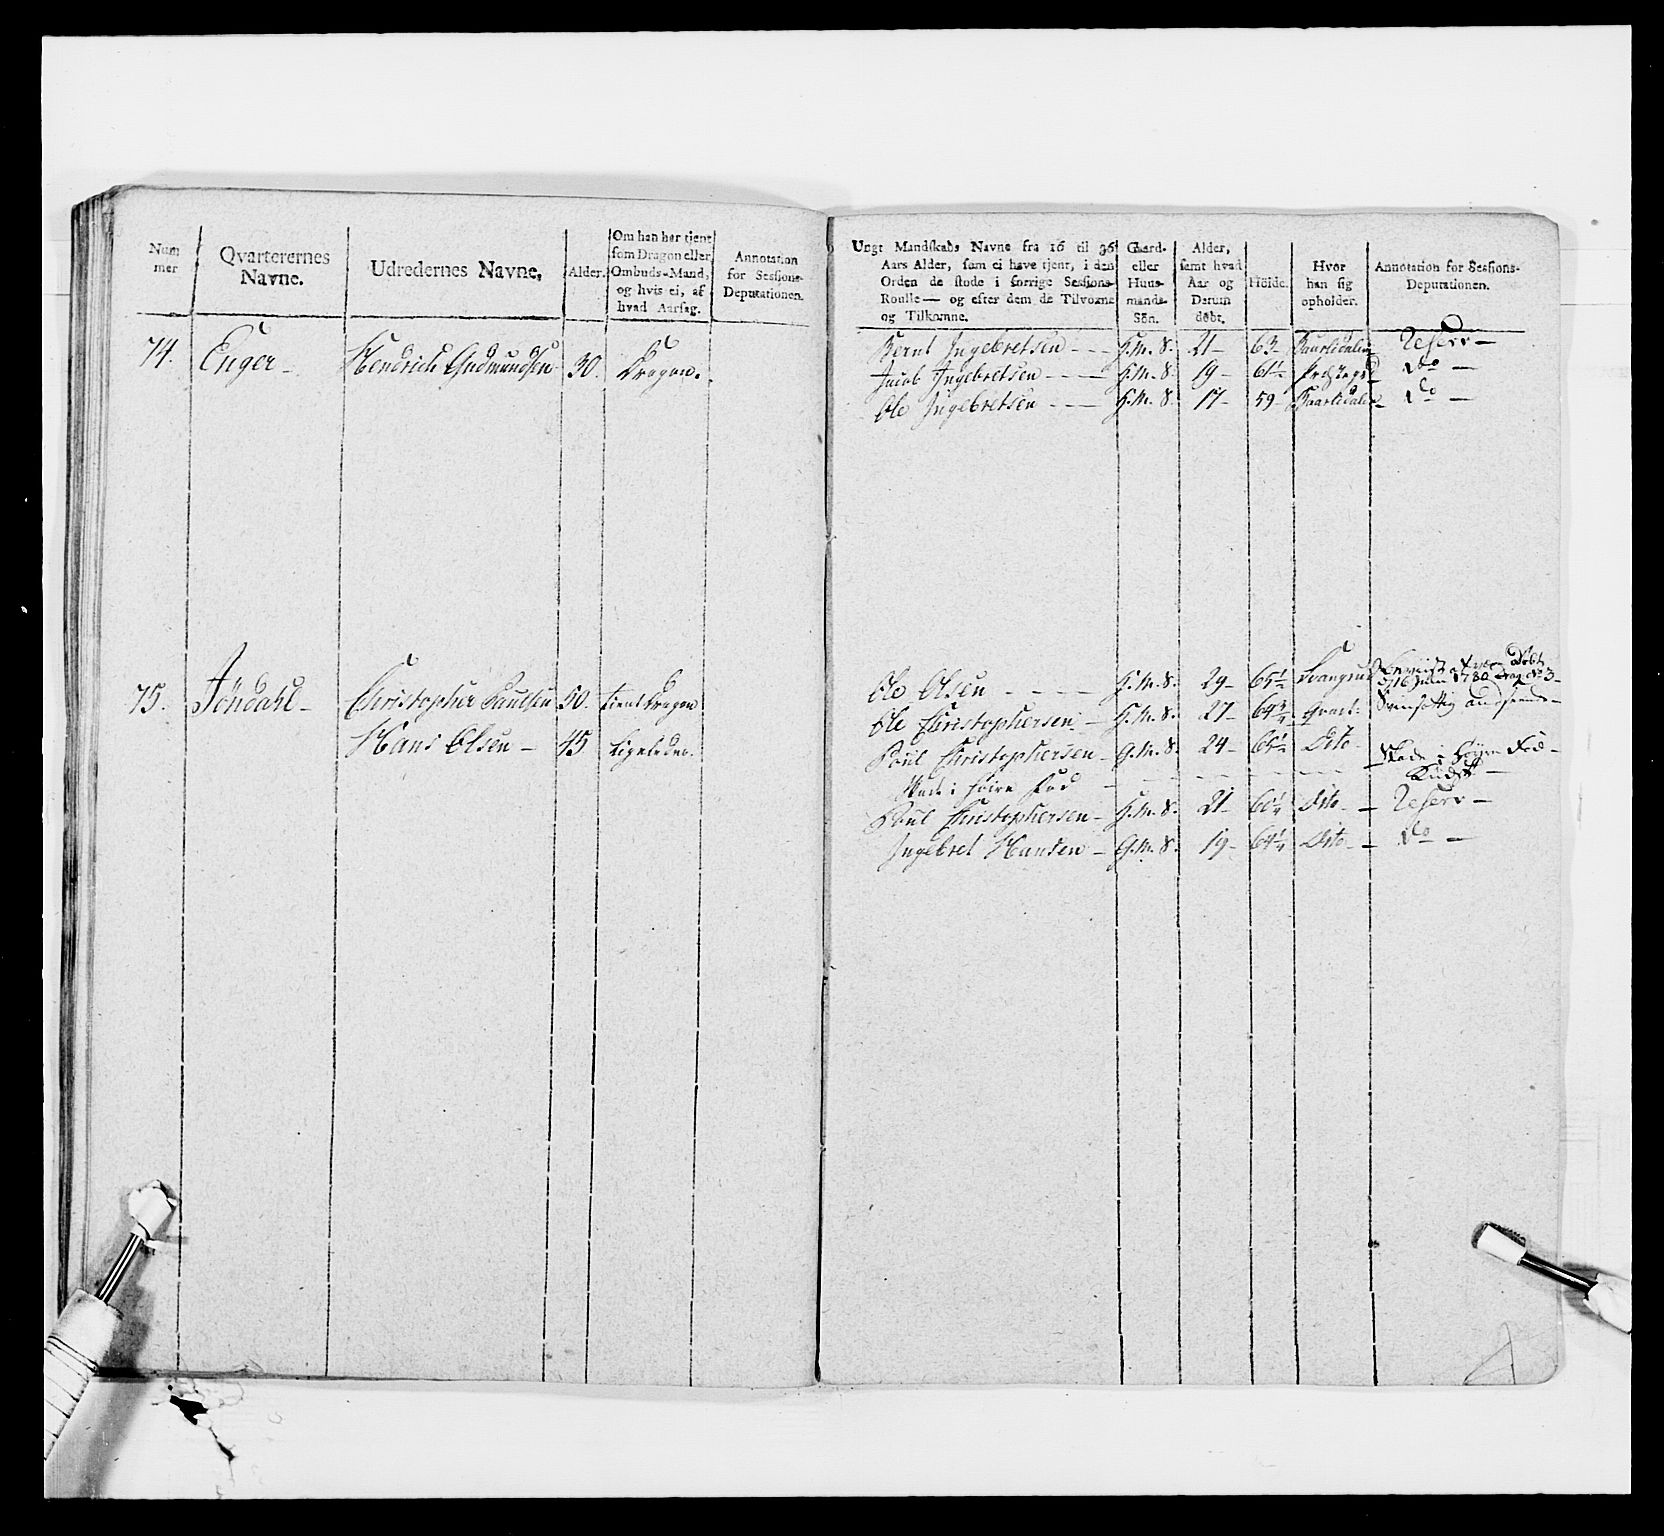 Num
mer
Qvarterernes
Navne.
Udredernes Navne,
Alder.
Om han har tjent
som Dragon eller
Ombuds-Mand,
og hvis ei, af
hvad Aarsag.
Annotation
for Sessions-
Deputationen.
74. Enger - Hendrich Gudmundsen 30. Dragon.
75. Jöndahl - Christopher Paulsen 50. tient Dragon
Hans Olsen - 45 Ligeledes.
Ungt Mandskabs Navne fra 16 til 36
Aars Alder, som ei have tjent, i den
Orden de stode i forrige Sessions-
Roulle — og efter dem de Tilvoxne
og Tilkomne.
Gaard-
eller
Huus-
mands-
Sön.
Alder,
samt hvad
Aar og
Datum
döbt.
Höide.
Hvor
han sig
opholder.
Annotation for Sessions-
Deputationen.
Bernt Ingebretsen - - H.M.S. 21 - 63 - Reserv -
Jacob Ingebretsen - - - H.M.S. 19 - 61½ Do -
Ole Ingebretsen - - - H.M.S. 17 - 59 - Do -
Ole Olsen - - - - H.M.S. 29 - 65½
Ole Christophersen - H.M.S. 27 - 64¾ Qvart.
Poul Christophersen - G.M.S. 24 - 65½ Dito -
Skade i höire Fod - Skade i höyre Fod -
Poul Christophersen - H.M.S. 21 - 60¼ Dito - Reserv -
Ingebret Hansen - G.M.S. 19 - 64¼ Dito - Do -